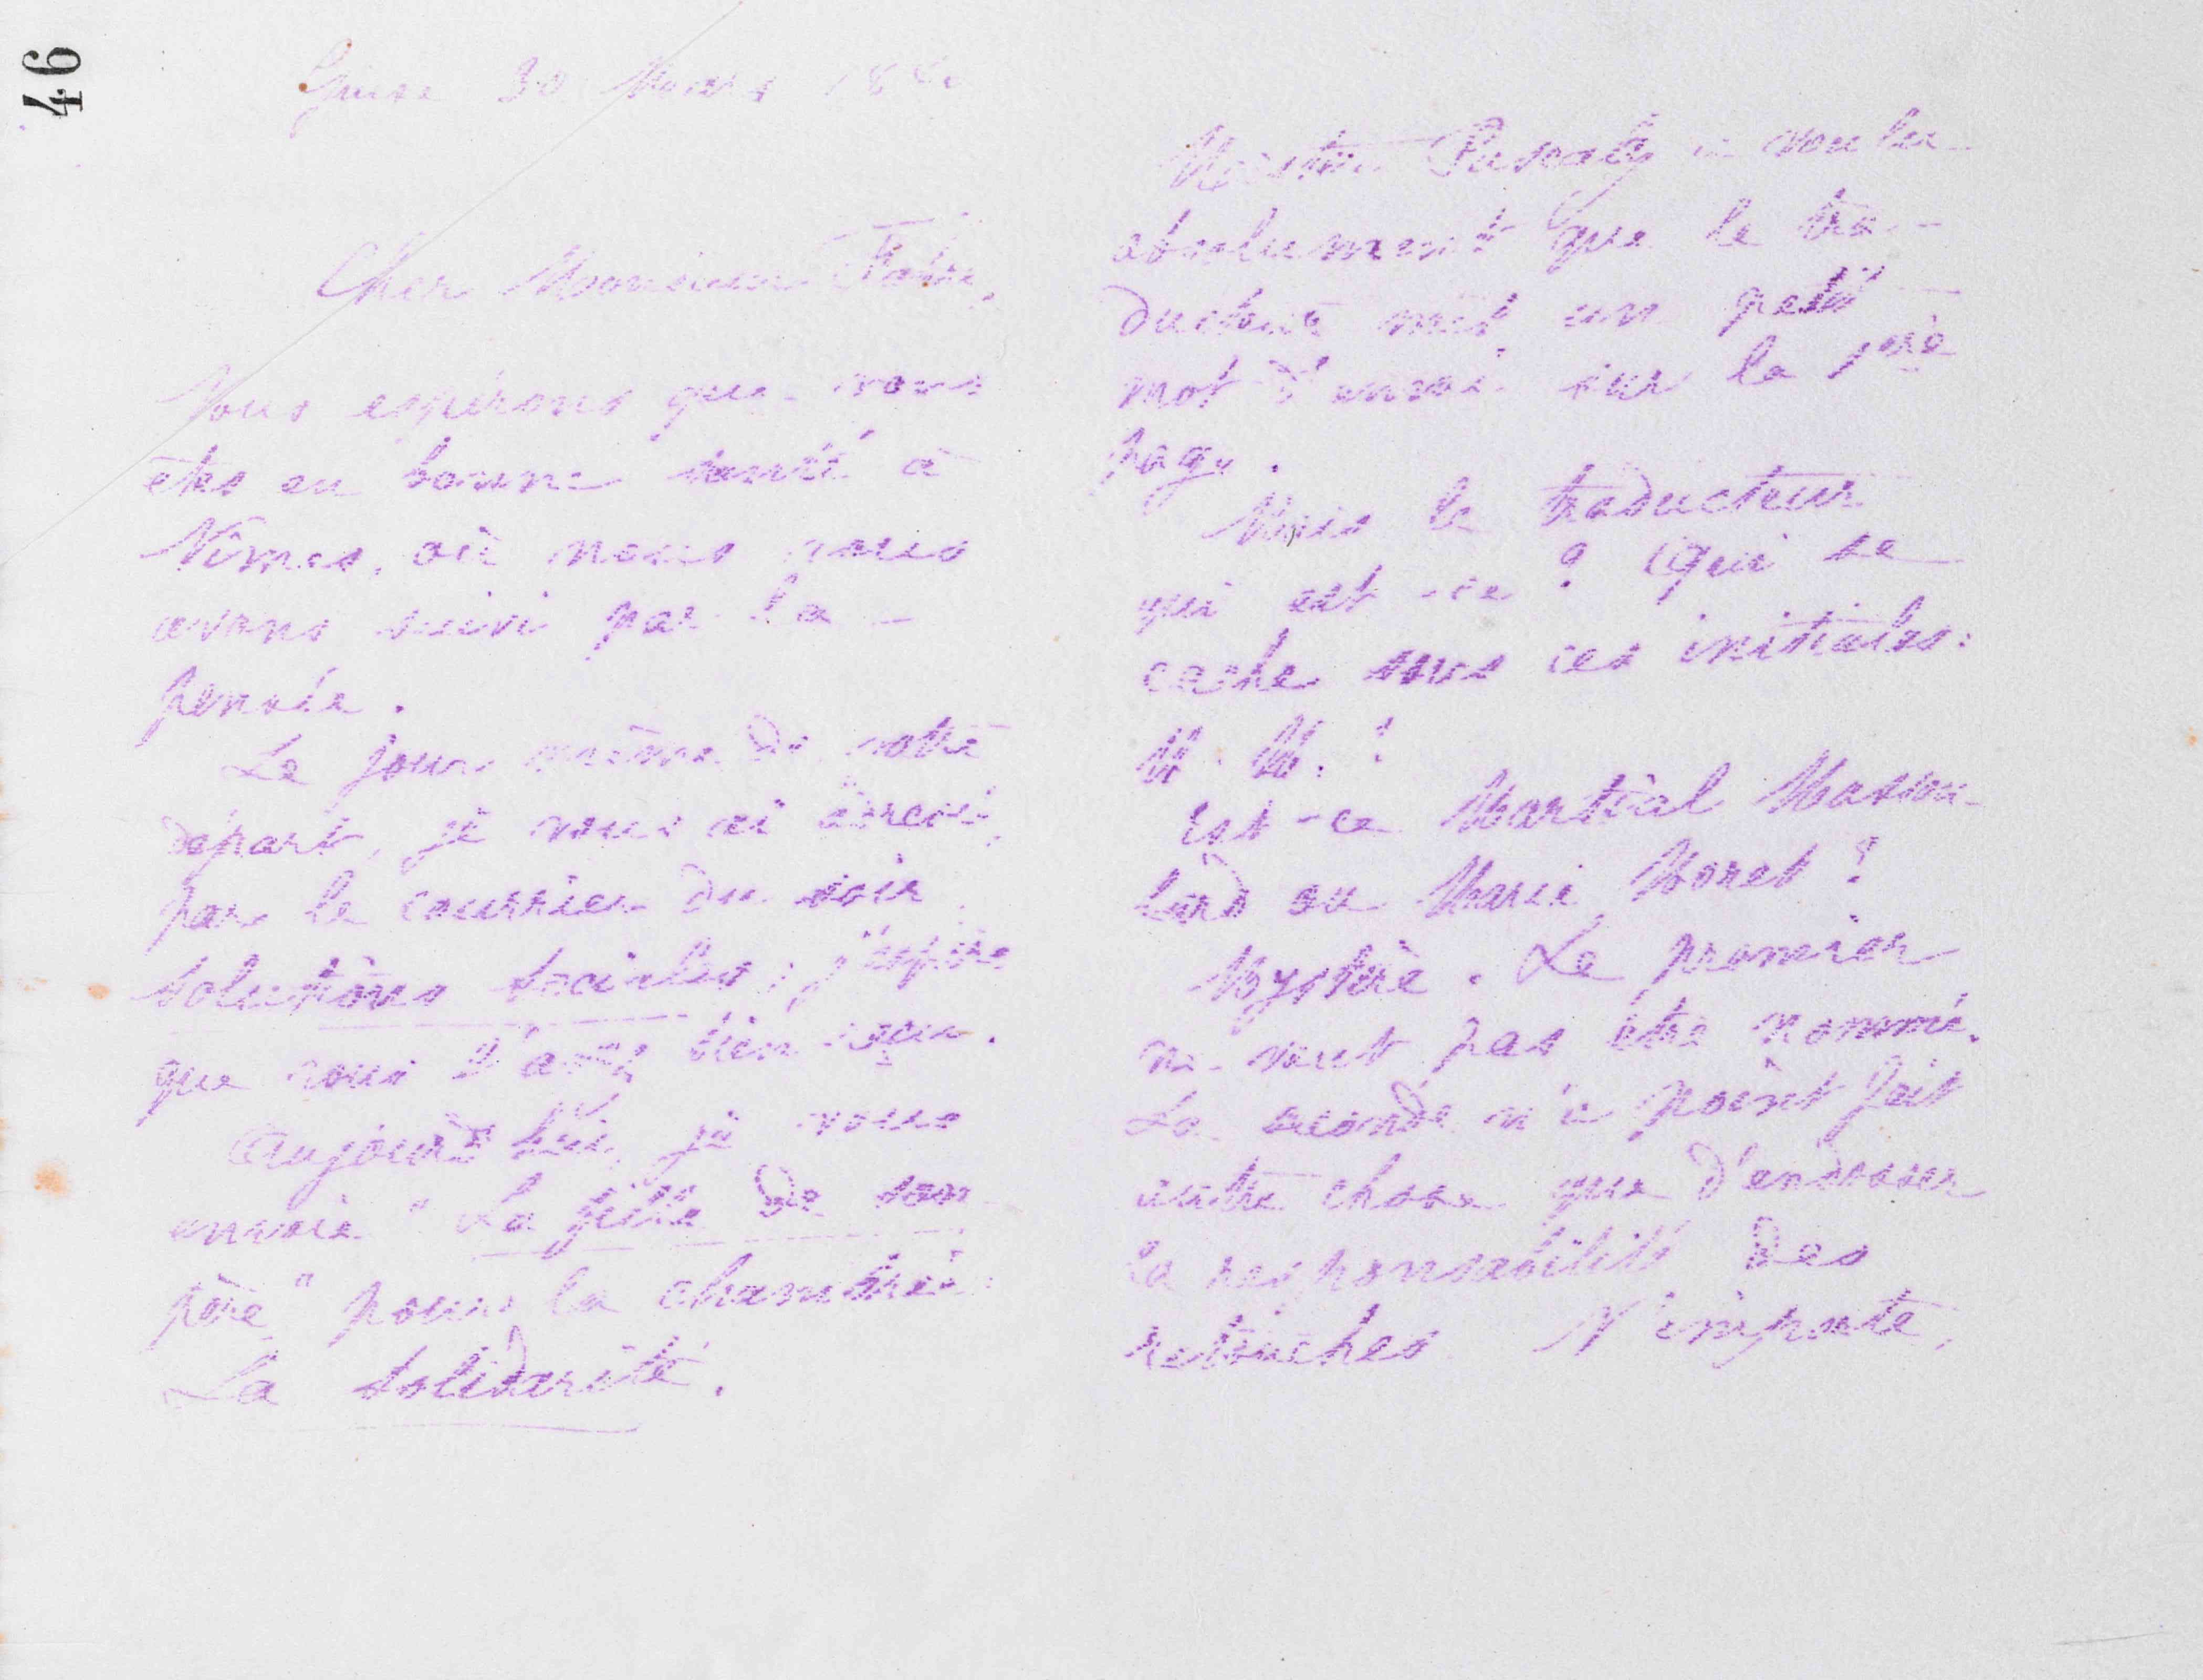 46
Guise 30 Mars 188
Cher Monsieur Fabre,
Nous espérons que vous
êtes en bonne santé à
Nîmes, où nous vous
avons suivi par la
pensée.
Le jour même de votre
départ, je vous ai adressé,
par le courrier du soir
Solutions sociales ; j'espère
que vous l'avez bien reçu.
Aujourd'hui, je vous
envoie "La fille de son
père" pour la chambrée
La Solidarité.
Pascaly a voulu
absolument que le tra-
ducteur mit un petit
mot d'envoi sur la 1ère
page.
Mais le traducteur
qui est-ce ? Qui se
cache sous ces initiales :
M. M. ?
Est-ce Martial Massou-
lard ou Marie Moret ?
Mystère. Le premier
ne veut pas être nommé.
La seconde n'a point fait
autre chose que d'endosser
la responsabilité des
retouches. N'importe,